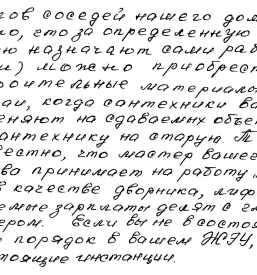 гов соседей нашего дом
но, что за определенную
ую назначают сами раб
и) можно приобрест
роительные материало
чаи, когда сантехники ва
еняют на сдаваемых объе
антехнику на старую. Т
вестно, что мастер вашег
ва принимает на работу
в качестве дворника, лиф
емые зарплаты делят с г
ером. Если вы не в состоя
порядок в вашем ЖЭУ,
тоящие инстанции.